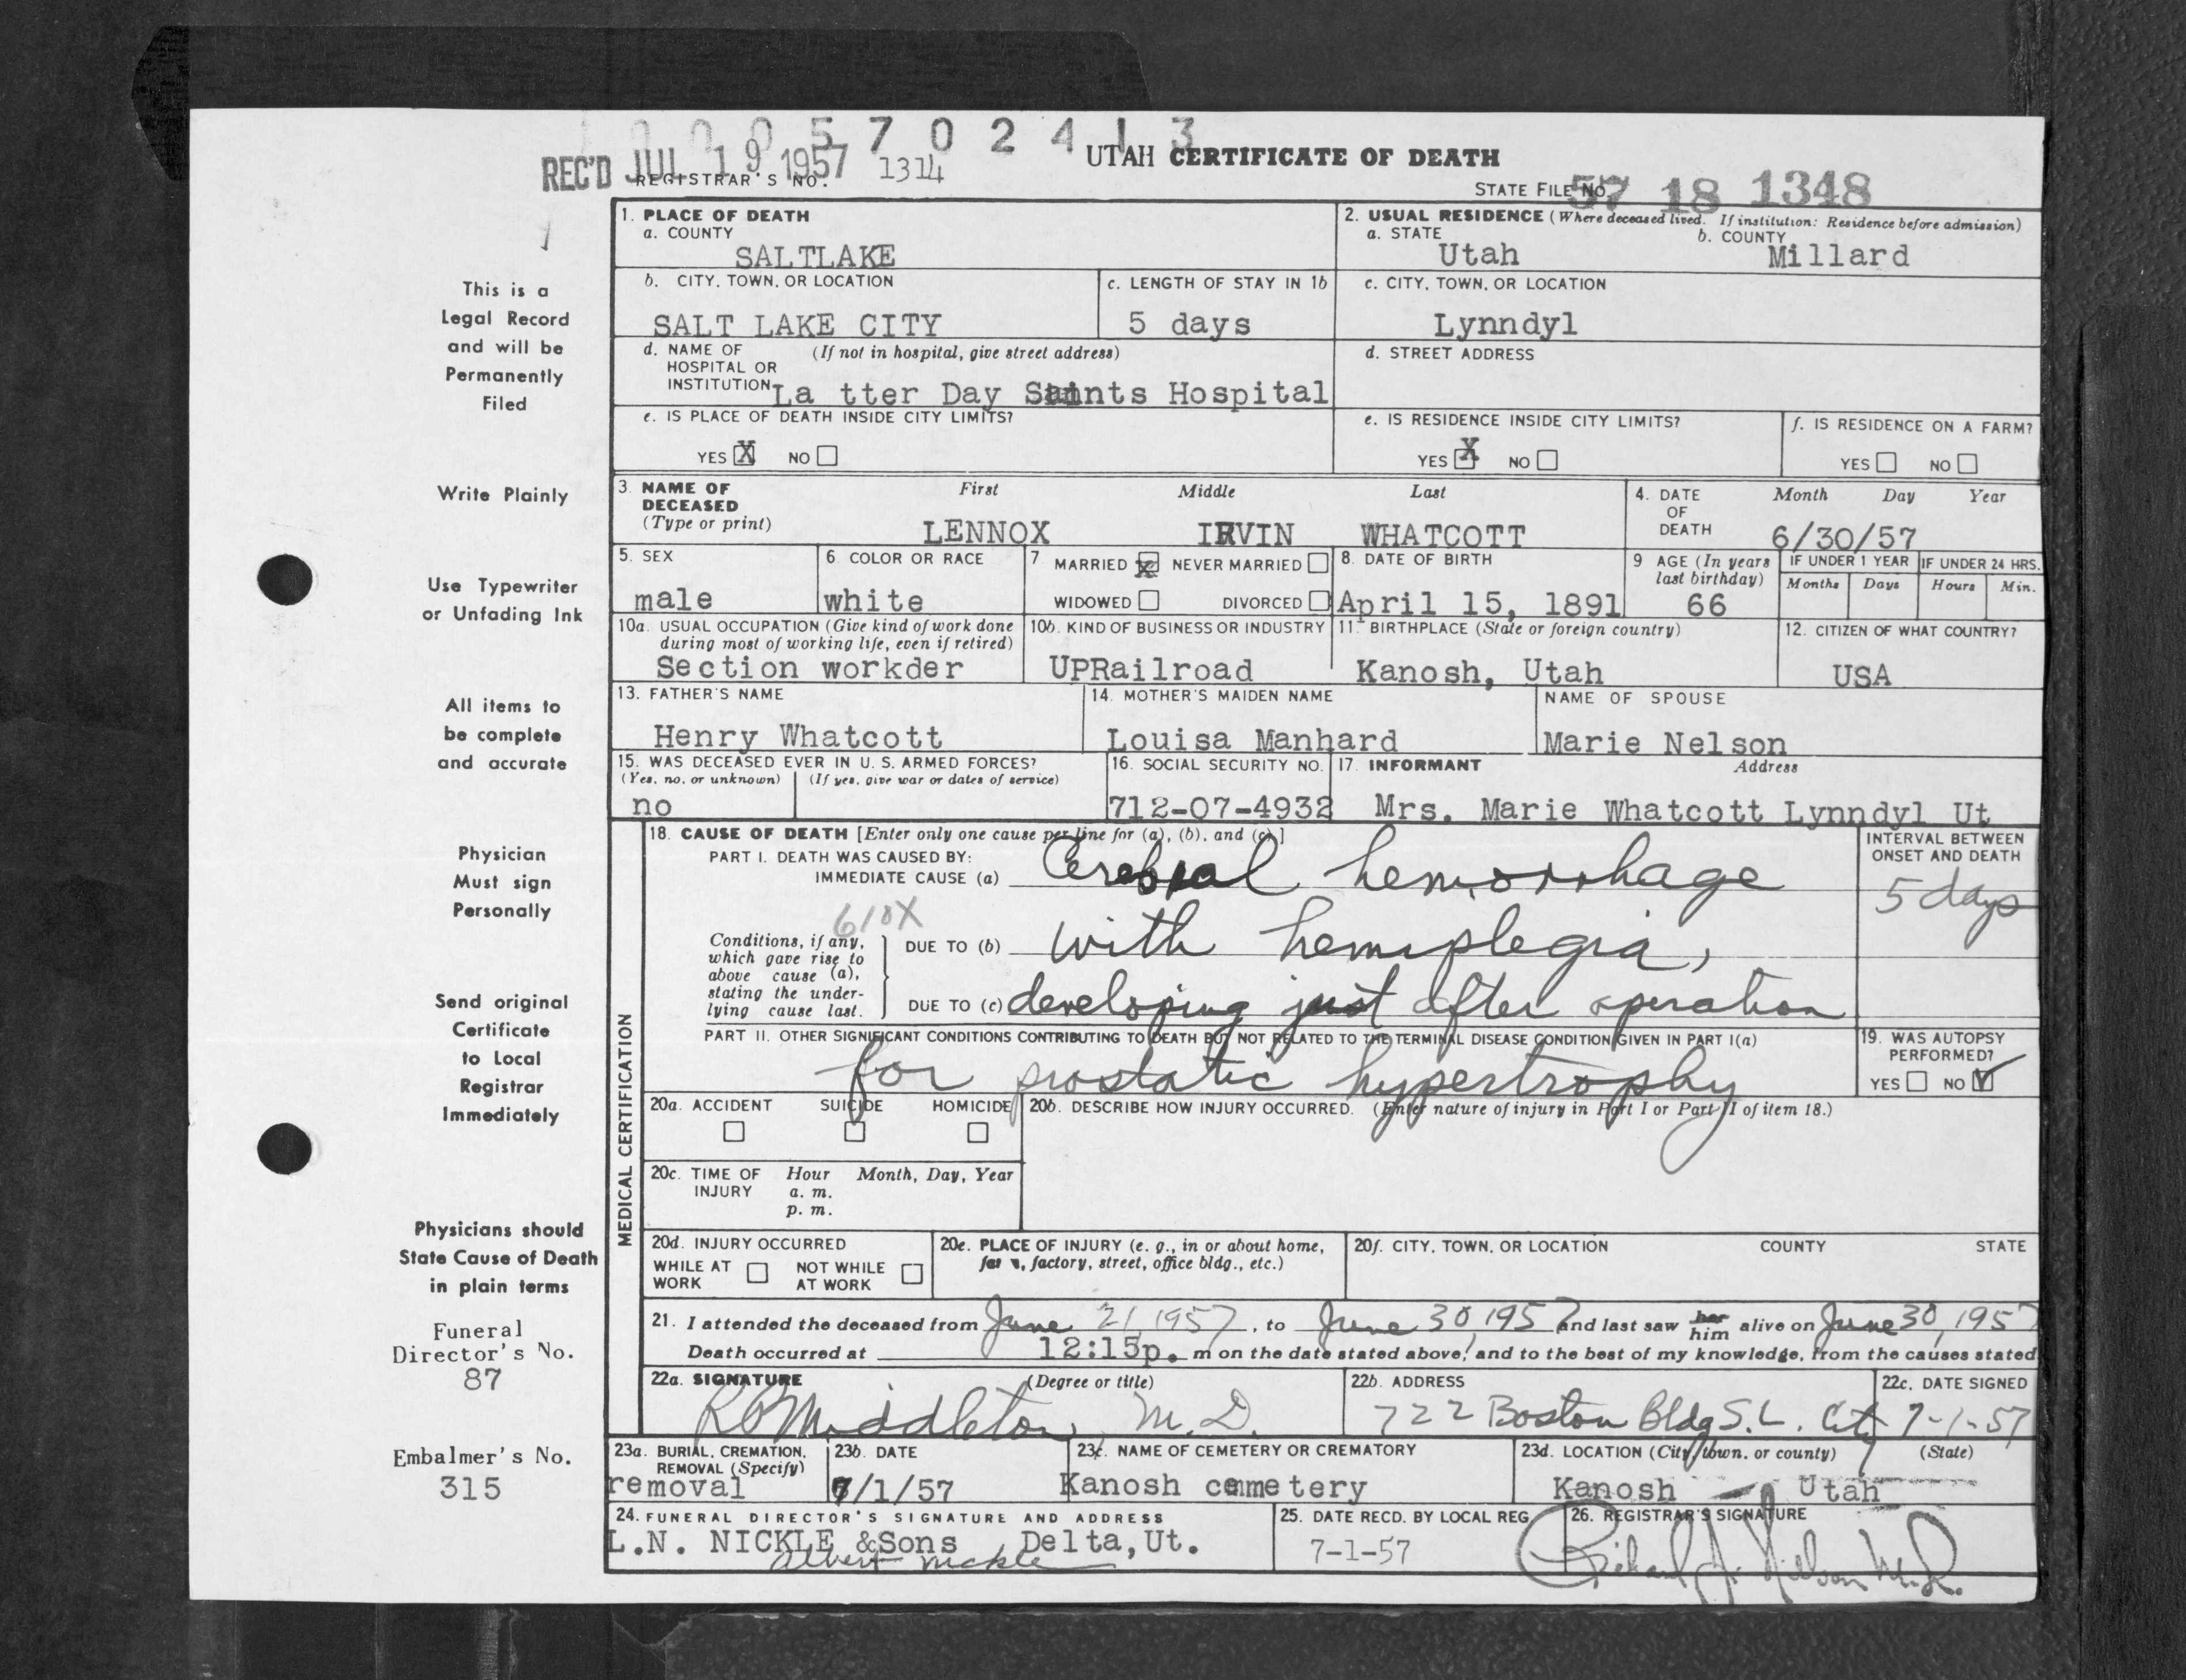 1000570 2413
REC'D JUL 19 1957
REGISTRAR'S NO. 1314
UTAH CERTIFICATE OF DEATH
STATE FILE NO. 57 18 1348
This is a
Legal Record
and will be
Permanently
Filed
Write Plainly
Use Typewriter
or Unfading Ink
All items to
be complete
and accurate
Physician
Must sign
Personally
Send original
Certificate
to Local
Registrar
Immediately
Physicians should
State Cause of Death
in plain terms
Funeral
Director's No.
87
Embalmer's No.
315
1. PLACE OF DEATH
a. COUNTY
SALTLAKE
2. USUAL RESIDENCE (Where deceased lived. If institution: Residence before admission)
a. STATE b. COUNTY
Utah Millard
b. CITY, TOWN, OR LOCATION
SALT LAKE CITY
c. LENGTH OF STAY IN 1b
5 days
c. CITY, TOWN, OR LOCATION
Lynndyl
d. NAME OF (If not in hospital, give street address)
HOSPITAL OR
INSTITUTION La tter Day Saints Hospital
d. STREET ADDRESS
e. IS PLACE OF DEATH INSIDE CITY LIMITS?
YES X NO
e. IS RESIDENCE INSIDE CITY LIMITS?
YES X NO
f. IS RESIDENCE ON A FARM?
YES NO
3. NAME OF First Middle Last
DECEASED
(Type or print) LENNOX IRVIN WHATCOTT
4. DATE Month Day Year
OF
DEATH 6/30/57
5. SEX
male
6. COLOR OR RACE
white
7 MARRIED X NEVER MARRIED
WIDOWED DIVORCED
8. DATE OF BIRTH
April 15, 1891
9 AGE (In years
last birthday)
66
IF UNDER 1 YEAR IF UNDER 24 HRS.
Months Days Hours Min.
10a. USUAL OCCUPATION (Give kind of work done
during most of working life, even if retired)
Section workder
10b. KIND OF BUSINESS OR INDUSTRY
UPRailroad
11. BIRTHPLACE (State or foreign country)
Kanosh, Utah
12. CITIZEN OF WHAT COUNTRY?
USA
13. FATHER'S NAME
Henry Whatcott
14. MOTHER'S MAIDEN NAME
Louisa Manhard
NAME OF SPOUSE
Marie Nelson
15. WAS DECEASED EVER IN U. S. ARMED FORCES?
(Yes, no, or unknown) (If yes, give war or dates of service)
no
16. SOCIAL SECURITY NO.
712-07-4932
17. INFORMANT Address
Mrs. Marie Whatcott Lynndyl Ut
MEDICAL CERTIFICATION
18. CAUSE OF DEATH [Enter only one cause per line for (a), (b), and (c).]
PART I. DEATH WAS CAUSED BY:
IMMEDIATE CAUSE (a) Cerebral hemorrhage
INTERVAL BETWEEN
ONSET AND DEATH
5 days
610X
Conditions, if any,
which gave rise to
above cause (a),
stating the under-
lying cause last.
DUE TO (b) with hemiplegia,
DUE TO (c) developing just after operation
PART II. OTHER SIGNIFICANT CONDITIONS CONTRIBUTING TO DEATH BUT NOT RELATED TO THE TERMINAL DISEASE CONDITION GIVEN IN PART I(a)
for prostatic hypertrophy
19. WAS AUTOPSY
PERFORMED?
YES NO ✓
20a. ACCIDENT SUICIDE HOMICIDE
20b. DESCRIBE HOW INJURY OCCURRED. (Enter nature of injury in Part I or Part II of item 18.)
20c. TIME OF Hour Month, Day, Year
INJURY a. m.
p. m.
20d. INJURY OCCURRED
WHILE AT NOT WHILE
WORK AT WORK
20e. PLACE OF INJURY (e. g., in or about home,
farm, factory, street, office bldg., etc.)
20f. CITY, TOWN, OR LOCATION COUNTY STATE
21. I attended the deceased from June 21, 1957, to June 30, 1957 and last saw her him alive on June 30, 1957
Death occurred at 12:15p. m on the date stated above, and to the best of my knowledge, from the causes stated
22a. SIGNATURE (Degree or title)
R P Middleton, M. D.
22b. ADDRESS
722 Boston Bldg S. L. City
22c. DATE SIGNED
7-1-57
23a. BURIAL, CREMATION,
REMOVAL (Specify)
removal
23b. DATE
7/1/57
23c. NAME OF CEMETERY OR CREMATORY
Kanosh cemmetery
23d. LOCATION (City, town, or county) (State)
Kanosh Utah
24. FUNERAL DIRECTOR'S SIGNATURE AND ADDRESS
L.N. NICKLE &Sons Delta,Ut.
Albert Nickle
25. DATE RECD. BY LOCAL REG.
7-1-57
26. REGISTRAR'S SIGNATURE
Richard A. Nelson M.D.